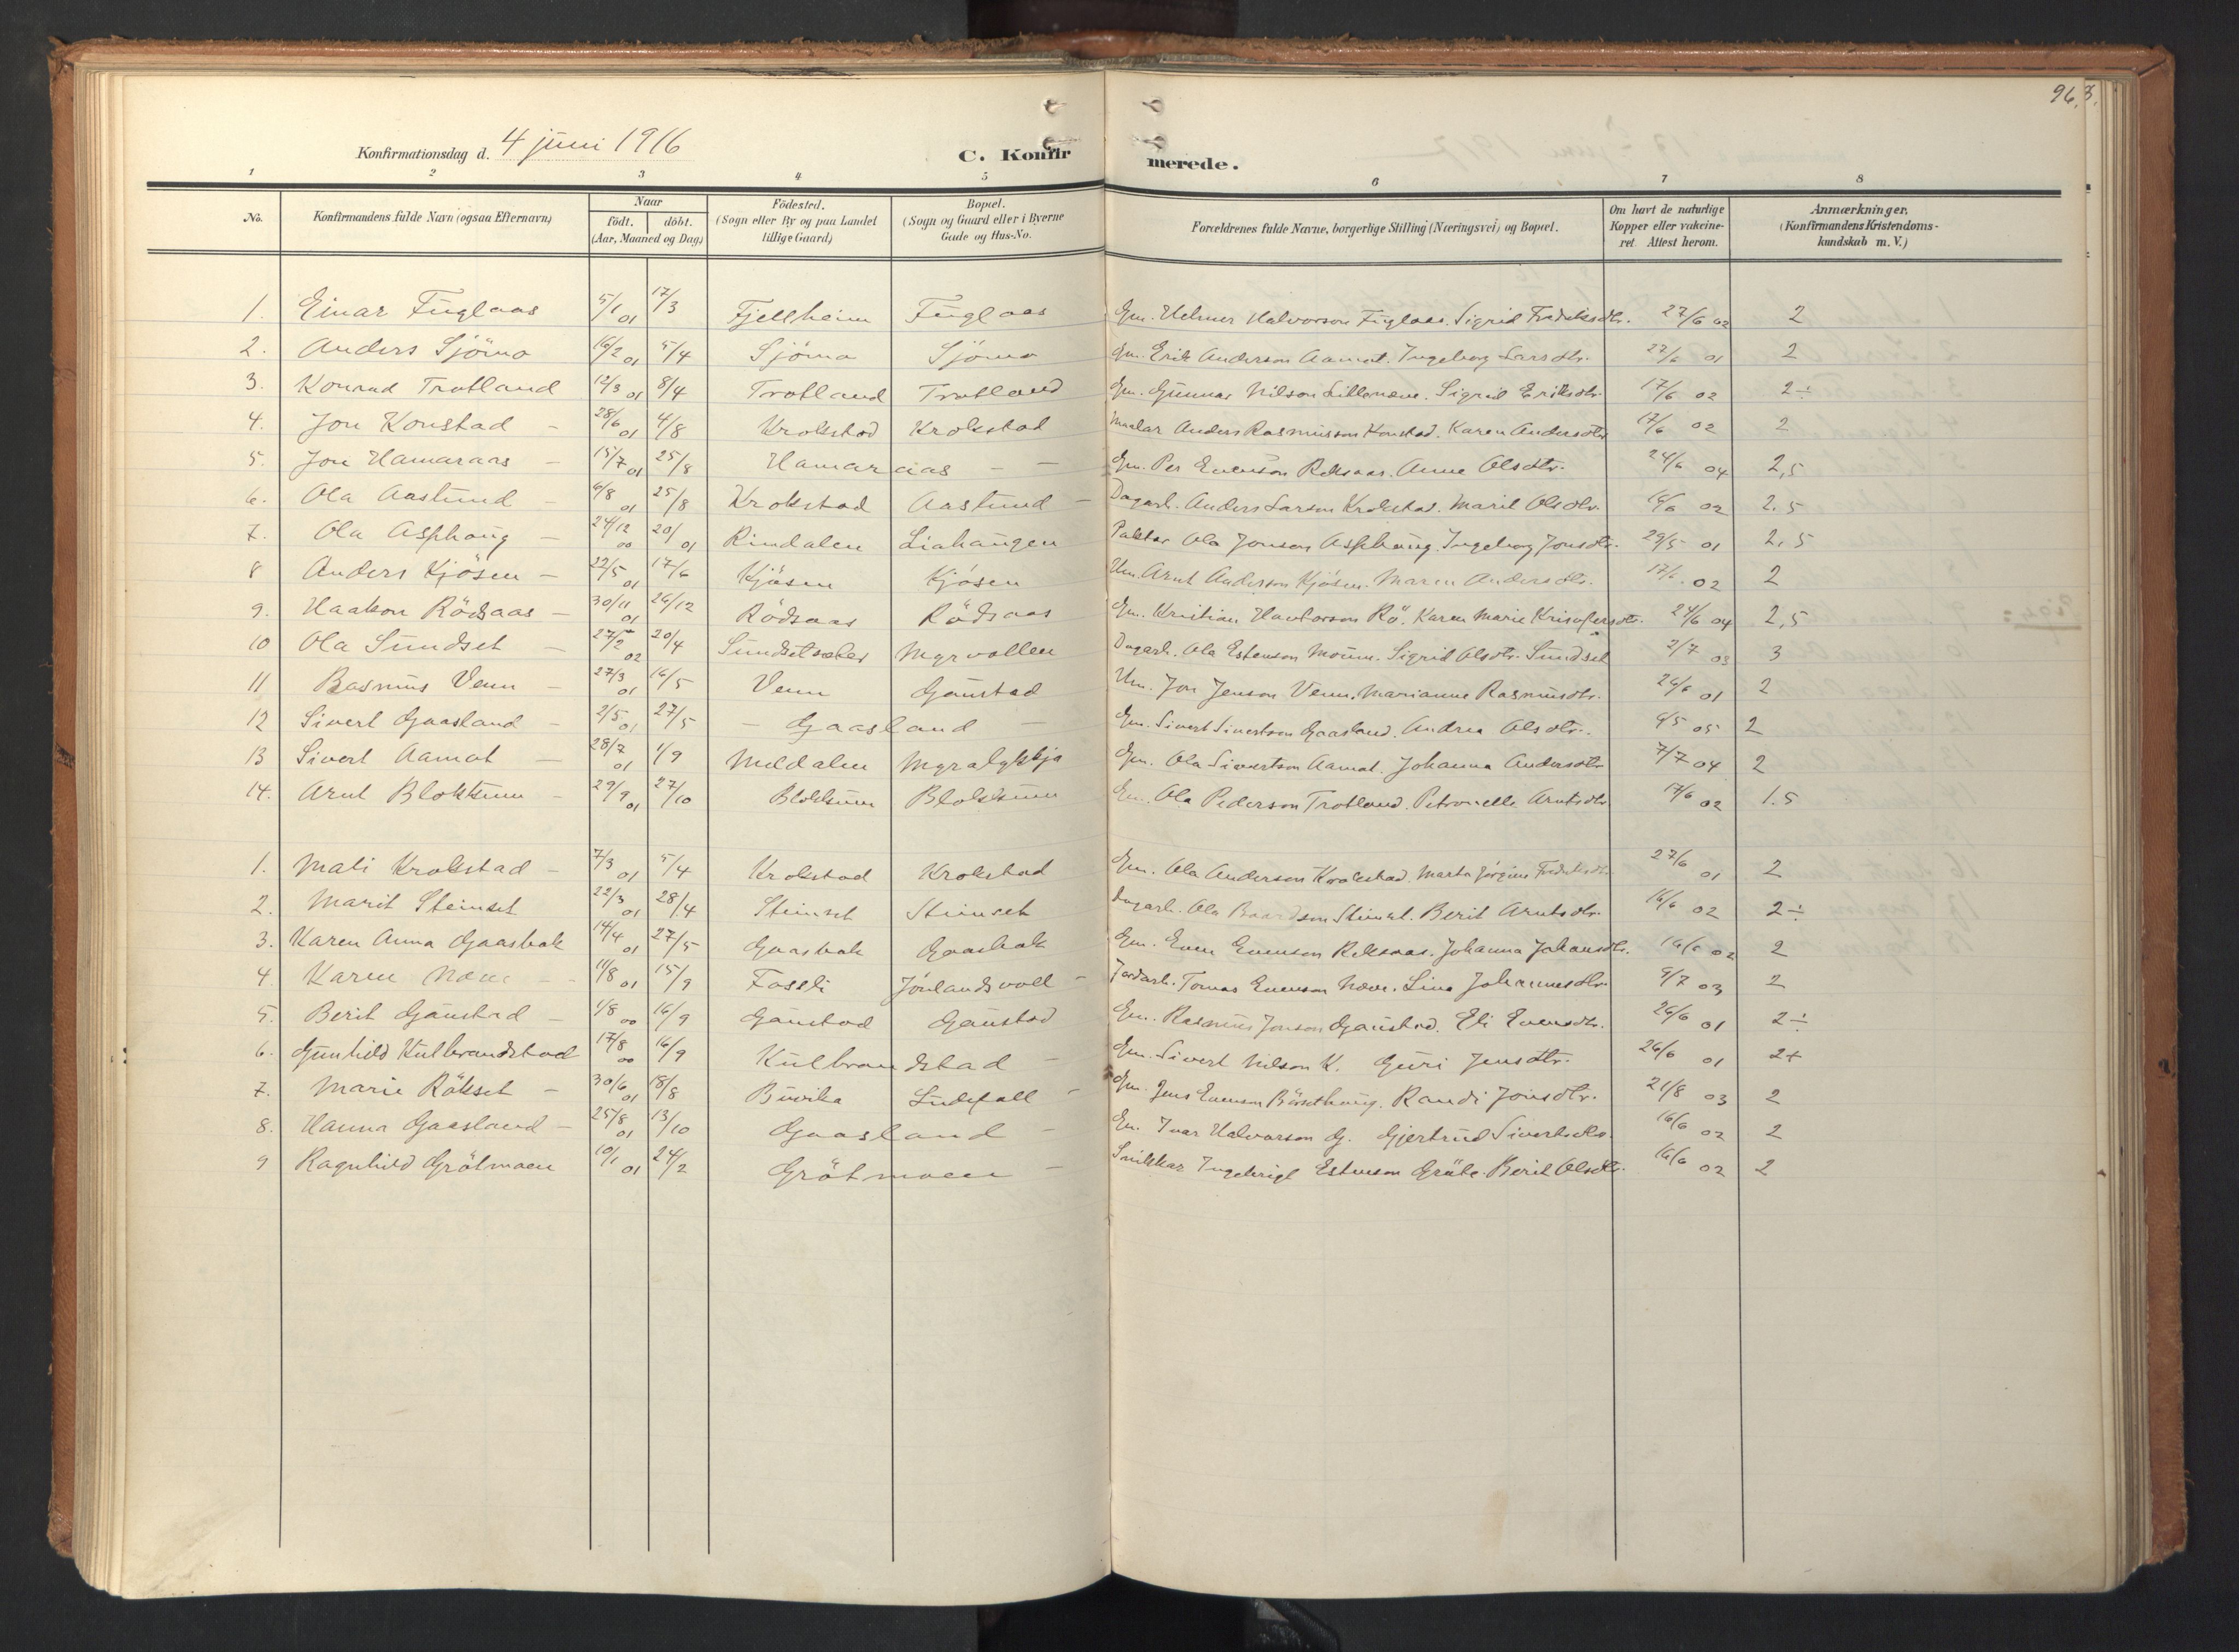 96.
Konfirmationsdag d. 4 juni 1916
C. Konfirmerede.
1 2 3 4 5 6 7 8
No. Konfirmandens fulde Navn (ogsaa Efternavn) Naar födt. döbt. (Aar, Maaned og Dag) Födested. (Sogn eller By og paa Landet tillige Gaard) Bopæl. (Sogn og Gaard eller i Byerne Gade og Hus-No. Forældrenes fulde Navne, borgerlige Stilling (Næringsvei) og Bopæl. Om havt de naturlige Kopper eller vakcineret. Attest herom. Anmærkninger. (Konfirmandens Kristendomskundskab m. V.)
1. Einar Fuglaas 5/1 01 17/3 Fjellheim Fuglaas Gm. Helmer Halvorson Fuglaas. Sigrid Fredriksdtr. 27/6 02 2
2. Anders Sjömo 16/2 01 5/4 Sjömo Sjömo Gm. Erik Anderson Aamot. Ingeborg Larsdtr. 27/6 01 2
3. Konrad Trotland 12/3 01 8/4 Trotland Trotland Gm. Gunnar Nilson. Sigrid Eriksdtr. 17/6 02 2÷
4. Jon Konstad - 28/6 01 4/8 Krokstad Krokstad Maalar Anders Rasmusson Konstad. Karen Andersdtr 17/6 02 2
5. Jon Hamaraas - 15/7 01 25/8 Hamaraas - - Gm. Per Evenson Reksaas. Anne Olsdtr. 24/6 04 2,5
6. Ola Aastund - 6/8 01 25/8 Krokstad Aastund - Dagarb. Anders Larson Krokstad. Marit Olsdtr. 16/6 02 2.5
7. Ola Asphaug - 24/12 00 20/1 01 Rindalen Liahaugen Paktar Ola Jonson Asphaug. Ingeborg Jonsdtr. 29/5 01 2,5
8 Anders Kjösen - 22/5 01 17/6 Kjösen Kjösen Um. Arnt Anderson Kjösen. Maren Andersdtr. 17/6 02 2
9. Haakon Rödsaas - 30/11 01 26/12 Rödsaas Rödsaas Gm. Kristian Havtorson Rö. Karen Marie Kristofersdtr. 24/6 04 2,5
10 Ola Sundset - 27/2 02 20/4 Sundsetsæter Myrvollen Dagarb. Ola Estenson Moum. Sigrid Olsdtr. Sundset 2/7 03 3
11 Rasmus Venn - 27/3 01 16/5 Venn Gaustad Um. Jon Jenson Venn. Marianne Rasmusdtr. 26/6 01 2
12 Sivert Gaasland - 2/5 01 27/5 - Gaasland - Gm. Sivert Sivertson Gaasland. Andrea Olsdtr. 4/5 05 2
13 Sivert Aamot - 28/7 01 1/9 Meldalen Myralykkja Gm. Ola Sivertson Aamot. Johanna Andersdtr 7/7 04 2
14. Arnt Blokkum - 29/9 01 27/10 Blokkum Blokkum Gm. Ola Pederson Trotland. Petronelle Arntsdtr 17/6 02 1.5
1. Mali Krokstad - 7/3 01 5/4 Krokstad Krokstad Gm. Ola Anderson Krokstad. Marta Jörgine Fredriksdtr. 27/6 01 2
2. Marit Steinset 22/3 01 28/4 Steinset Steinset Dagarb. Ola Baardson Steinset. Berit Arntsdtr. 16/6 02 2÷
3. Karen Anna Gaasbak 14/4 01 27/5 Gaasbak Gaasbak Gm. Even Evenson Reksaas. Johanna Johansdtr. 16/6 02 2
4. Karen Næve - - 11/8 01 15/9 Fossli Jönlandsvoll - Jordarb. Tomas Evenson Næve. Lina Johannesdtr. 9/7 03 2
5. Berit Gaustad - 1/8 00 16/9 Gaustad Gaustad Gm. Rasmus Jonson Gaustad. Eli Evensdtr. 26/6 01 2÷
6. Gunhild Kulbrandstad 17/8 00 16/9 Kulbrandstad - Gm. Sivert Nilson K. Guri Jensdtr. 26/6 01 2+
7. Marie Rökset - 30/6 01 18/8 Buvika - Gm. Jens Evenson. Randi Jonsdtr. 21/8 03 2
8. Hanna Gaasland - 25/8 01 13/10 Gaasland - Gm. Ivar Halvorson G. Gjertrud Sivertsdtr. 16/6 02 2
9 Ragnhild Grötmoen 10/1 01 24/2 Grötmoen - Snikkar Ingebrigt Estenson Gröte. Berit Olsdtr. 16/6 02 2